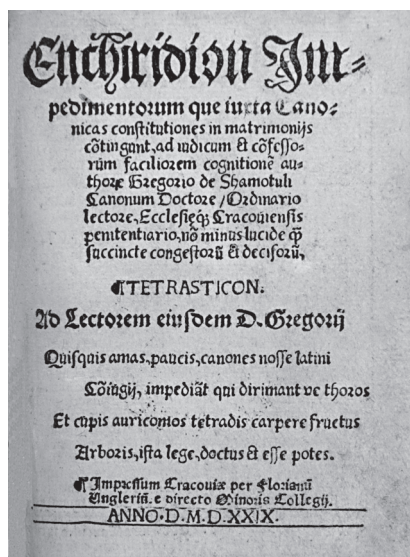 Enchiridion Im⸗
pedimentorum que iuxta Cano⸗
nicas constitutiones in matrimonijs
cōtingunt, ad iudicum & cōfesso⸗
rum faciliorem cognitionē au⸗
thore Gregorio de Shamotuli
Canonum Doctore / Ordinario
lectore, Ecclesięq́; Cracouiensis
penitentiario, nō minus lucide q̄
succincte congestorū & decisorū,
¶TETRASTICON.
Ad Lectorem eiusdem D. Gregorij
Quisquis amas, paucis, canones nosse latini
Cōiugij, impediāt qui dirimant ve thoros
Et cupis auricomos tetradis carpere fructus
Arboris, ista lege, doctus & esse potes.
¶ Impressum Cracouiæ per Florianū
Ungleriū. e directo Minoris Collegij.
ANNO.D.M.D.XXIX.